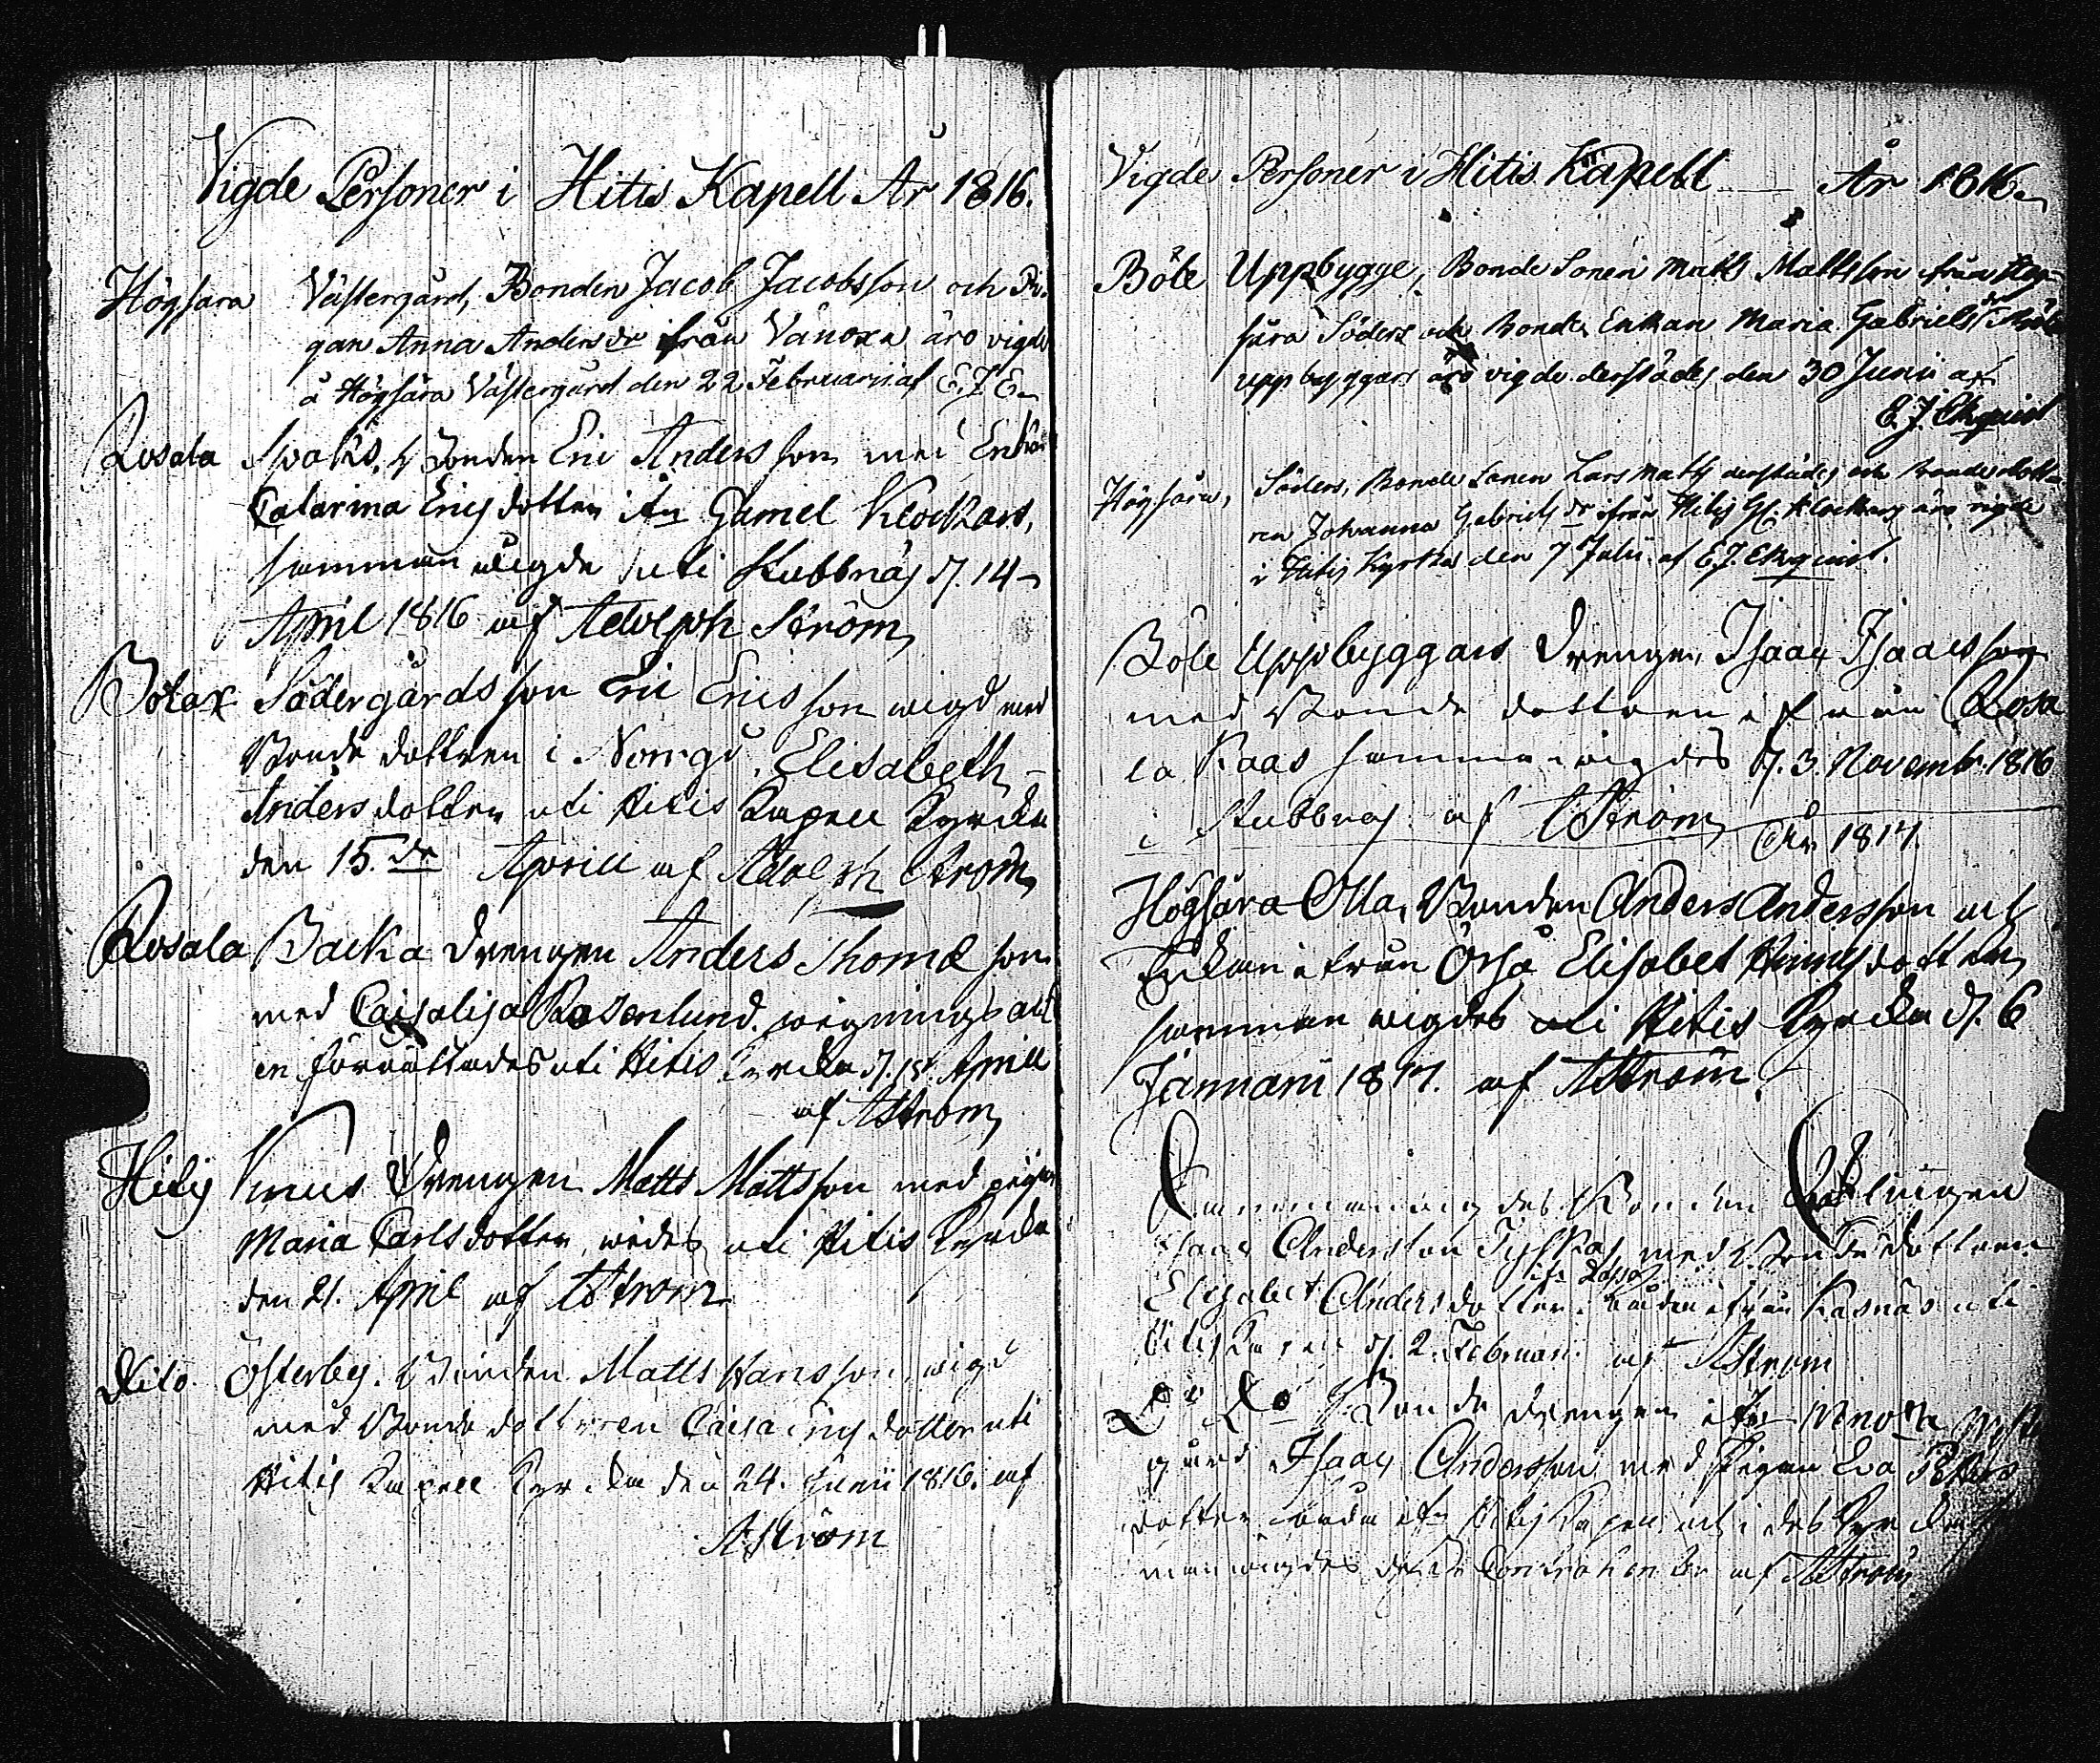 Vigde Personer i Hitis Kapell År 1816.
Högsara Västergård, Bonden Jacob Jacobsson och Pi-
gan Anna Andersdr från Vänoxa äro vigde
å Högsåra Västergård den 22 Februarii af E.J.E.
Rosala Spaks, Bonden Eric Andersson med Enkan
Catarina Ericsdotter ifrn Gamel Klockars,
samman wigde uti Stubbnäs d. 14
April 1816 af Adolph Ström
Bolax Södergårds son Eric Ericsson wigd med
Bonde dottren i Norrgd, Elisabeth
Andersdotter uti Hitis Kapell Kyrka
den 15.de Aprill af Adolph Ström
Rosala Backa Drengen Anders Thomæson
med Caisalisa Rosenlund. wignings act
en förrättades uti Hitis Kyrka d. 15 Aprill
af AStröm
Hitis Knus Drengen Matts Mattsson med pigan
Maria Carlsdotter, uti Hitis Kyrka
den 21. April af AStröm
Dito Österby. Bonden Matts Hansson, wigd
med Bonde dottren Caisa Ericsdotter uti
Hitis Kapell Kyrka den 24. Junii 1816. af
AStröm
Vigde Personer i Hitis Kapell År 1816
Böle Uppbygge, Bonde Sonen Matts Mattsson från Hög-
såra Söders och Bonde Enkan Maria Gabrielsdr Böle
uppbyggars äro vigde derstädes den 30 Junii af
E.J. Ekqvist
Högsåra, Söders, Bonde Sonen Lars Matts derstädes och Bonde dott-
ren Johanna Gabrielsdr ifrån Hitis Gl. Klockars äro vigde
i Hitis Kyrka den 7 Julii af E.J. Ekqvist.
Böle Uppbyggars Drengen, Isaac Isaacsson
med Bonde dottren ifrån Rosa
la Kaas sammanwigdes d. 3. Novembr. 1816
i Stubbnäs af AStröm
År 1817.
Högsåra Olla, Bonden Anders Andersson och
Enkan ifrån Örså Elisabet dotter
samman wigdes uti Hitis Kyrka d. 6
Januarii 1817. af AStröm.
Sammanwigdes Bonden
Isaac Andersson Tyskas med Bonde dottren
Elisabet Andersdotter ifrån Kasnäs uti
Hitis Kapell d. 2. Februari af AStröm
Do Do Bonde drengen ifr
gård Isaac Andersson med Pigan Eva Peters
dotter ifr Hitis Kapell uti des Kyrka
manwigdes Contrahenter af AStröm